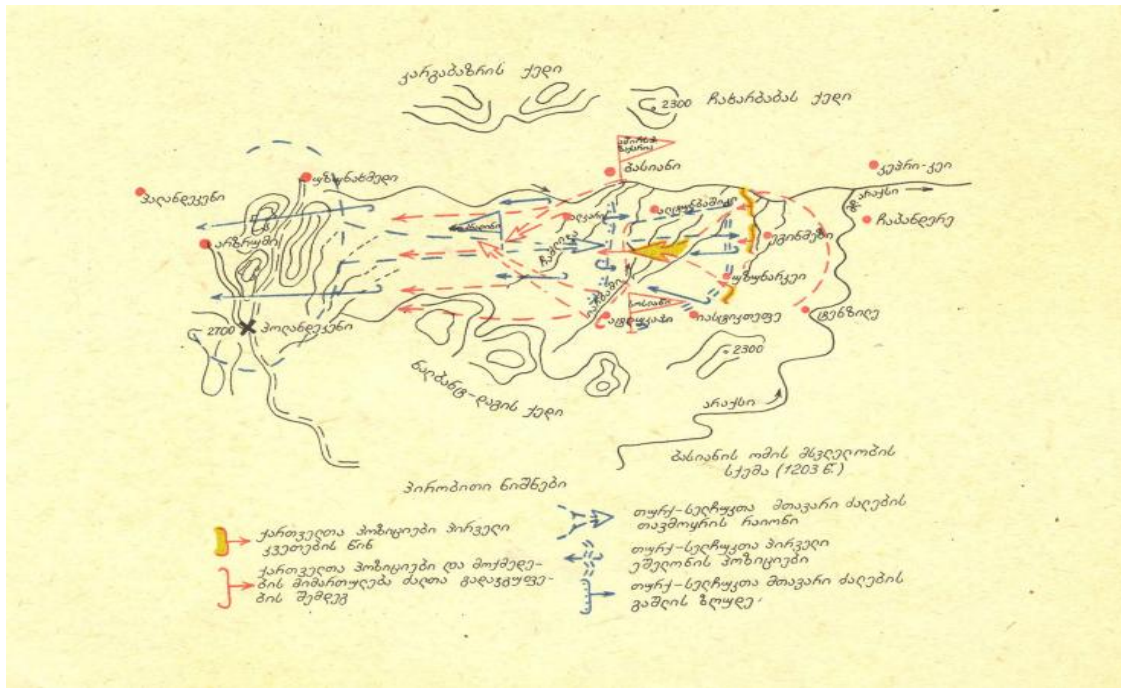 კარგაბაზრის ქედი
2300 ჩახარბაბას ქედი
ბასიანი
კეპრი-კეი
უზუნახმედი
პალანდეკენი
მდ. არაქსი
ჩაპანდერე
არზრუმი
ეგინმეზი
უზუნარკეი
2700 პოლანდეკენი
იასტიკთეფე
ტენზილე
2300
ნალბანტ-დაგის ქედი
არაქსი
ბასიანის ომის მსვლელობის
სქემა (1203 წ.)
პირობითი ნიშნები
ქართველთა პოზიციები პირველი
კვეთების წინ
ქართველთა პოზიციები და მოქმედე-
ბის მიმართულება ძალთა გადაჯგუფე-
ბის შემდეგ
თურქ-სელჩუკთა მთავარი ძალების
თავმოყრის რაიონი
თურქ-სელჩუკთა პირველი
ეშელონის პოზიციები
თურქ-სელჩუკთა მთავარი ძალების
გაშლის ზღუდე